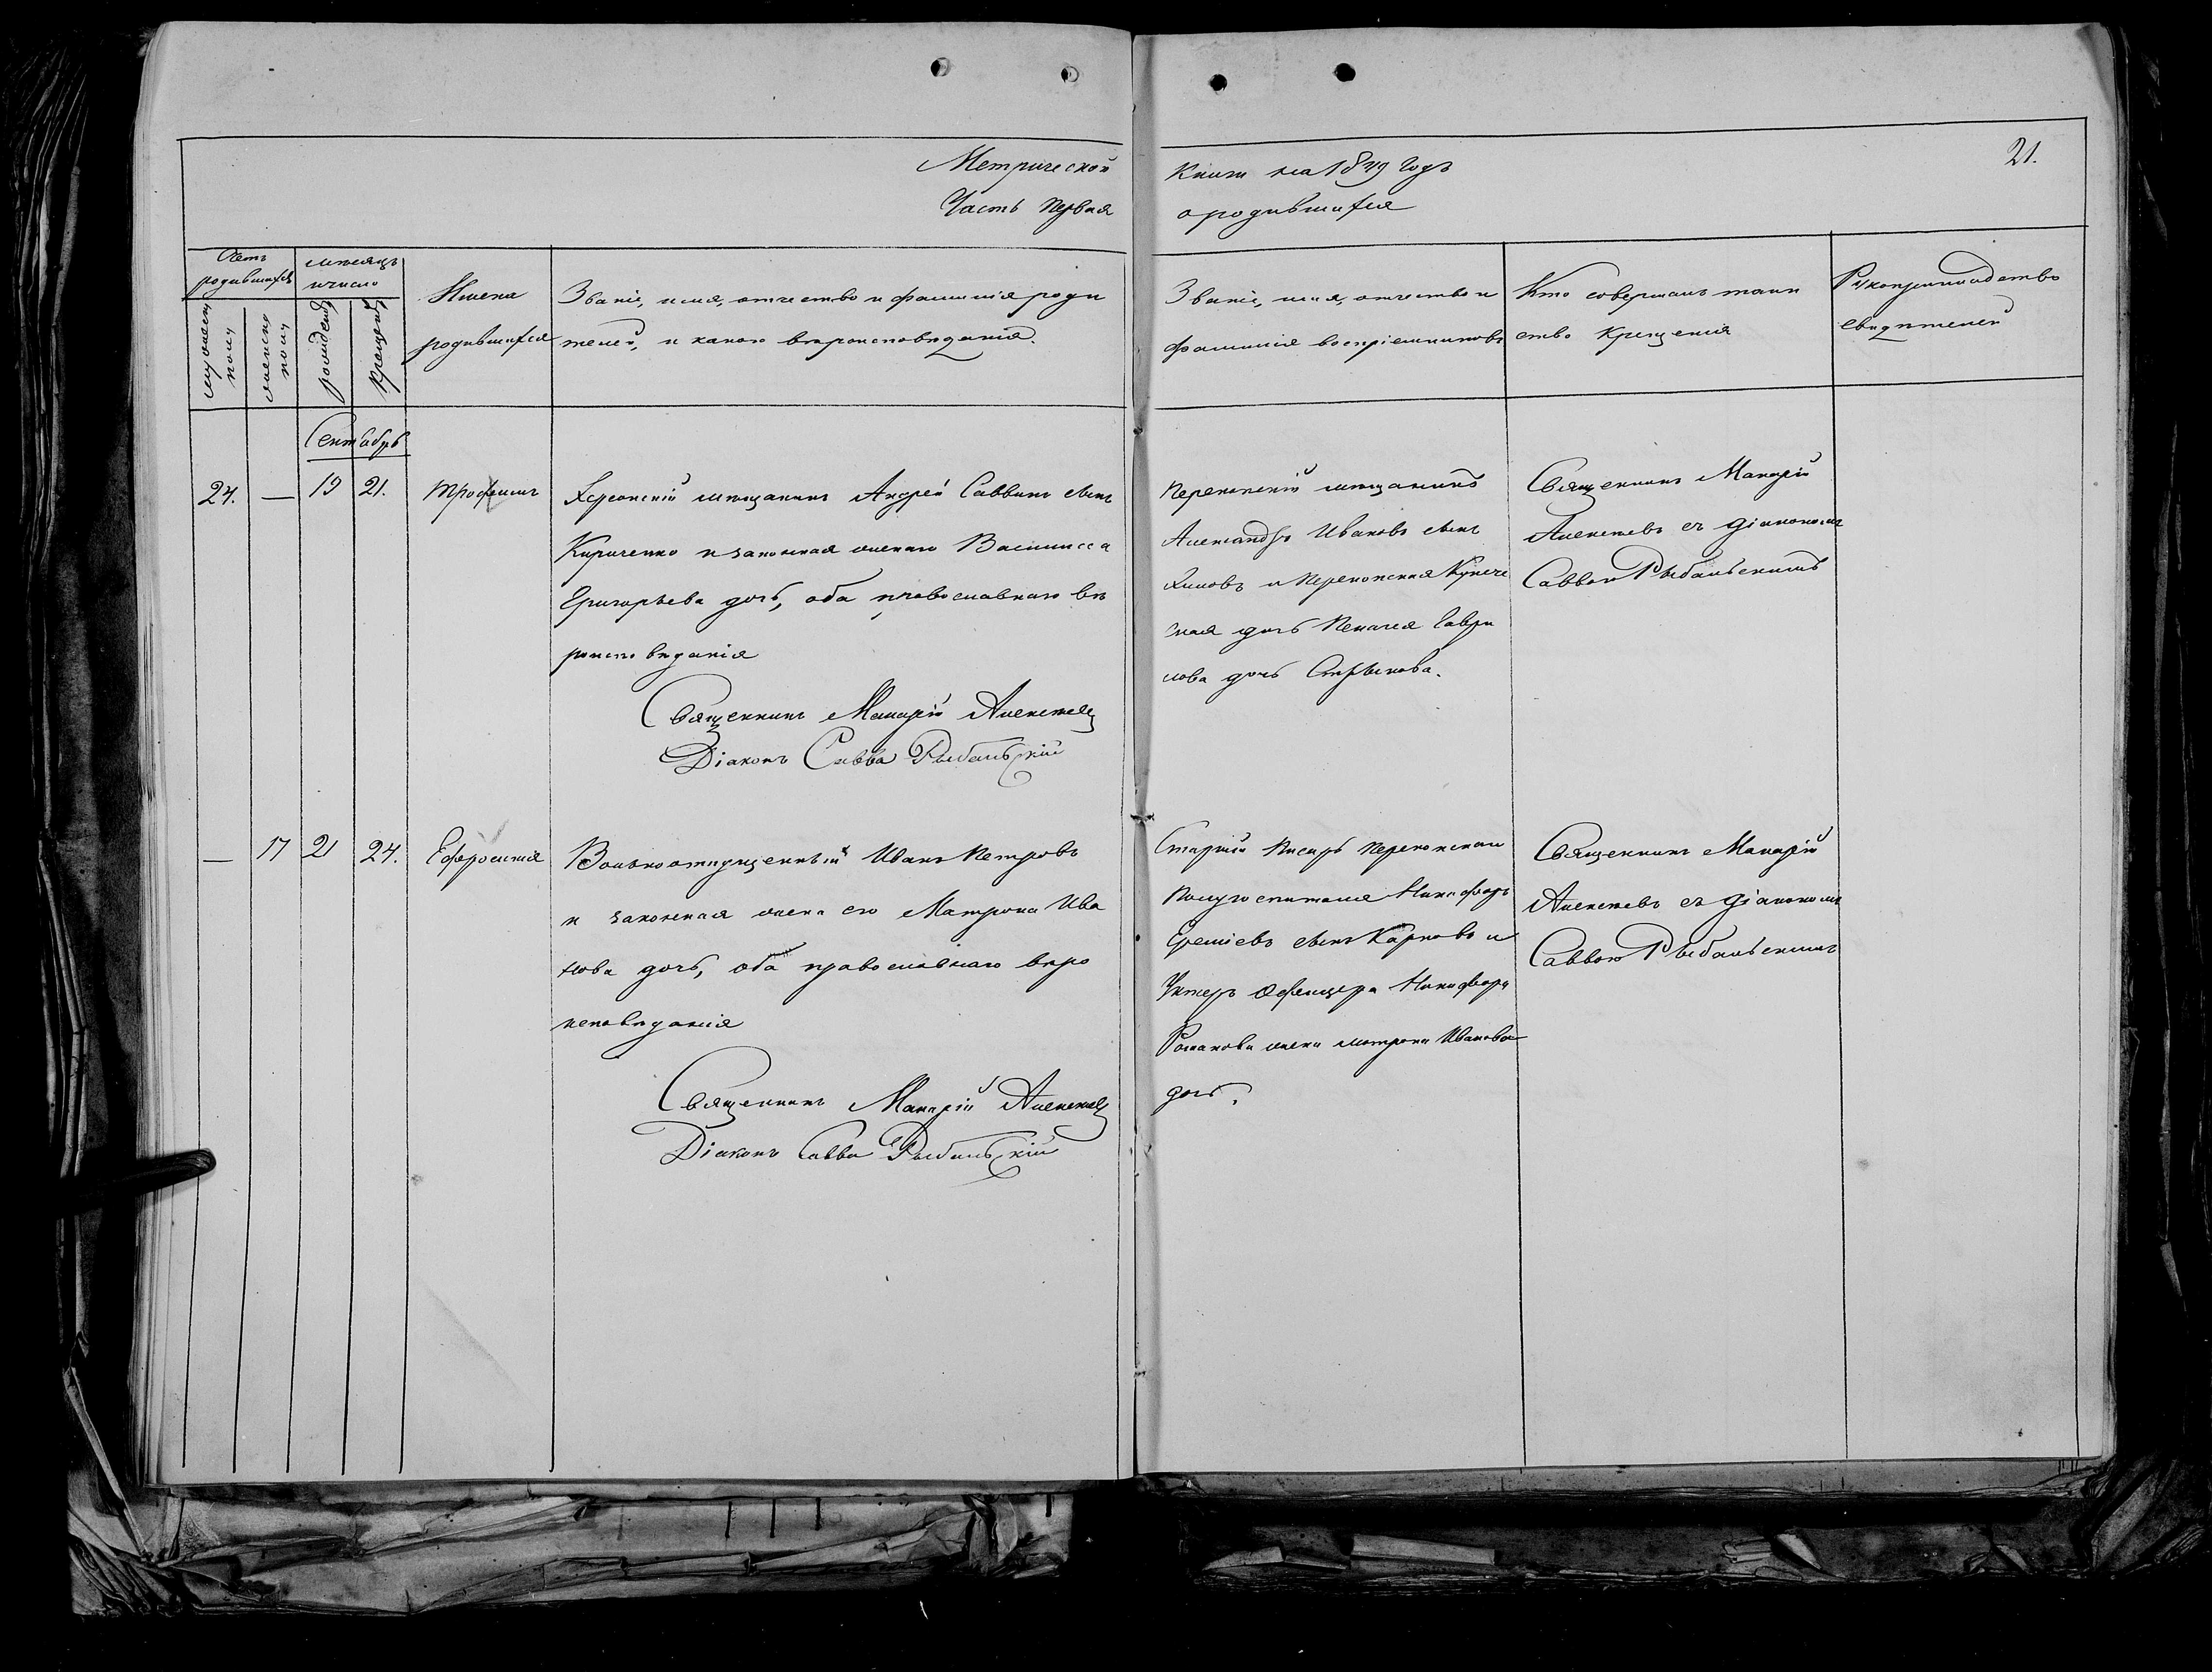 Метрической
Часть первая
Книги на 1849 годъ
о родившихся
21.
Счетъ родившихся
мѣсяцъ и число
мужеска полу
женска полу
рожденія
крещенія
Имена
родившихся
Званіе, имя, отчество и фамилія роди
телей, и какого вѣроисповѣданія.
Званіе, имя, отчество и
фамилія воспріемниковъ
Кто совершалъ таин
ство крещенія
Рукоприкладство
свидѣтелей
Сентябрь
24. — 19 21. Трофимъ
Херсонскій мѣщанинъ Андрей Саввинъ сынъ
Кириченко и законная жена его Василисса
Григорьева дочь, оба православнаго вѣ
роисповѣданія
Священникъ Макарій Алексѣевъ
Діаконъ Савва Рыбальскій
Перекопскій мѣщанинъ
Александръ Ивановъ сынъ
и Перекопская Купече
ская дочь Пелагея Гаври
лова дочь
Священникъ Макарій
Алексѣевъ съ діакономъ
Саввою Рыбальскимъ
— 17 21 24. Ефросинія
Вольноотпущенный Иванъ Петровъ
и законная жена его Матрона Ива
нова дочь, оба православнаго вѣро
исповѣданія
Священникъ Макарій Алексѣевъ
Діаконъ Савва Рыбальскій
Старшій писарь Перекопскаго
Полугоспиталя Никифоръ
сынъ Карповъ и
Унтеръ Офицера Никифора
Романова жена Матрона Иванова
дочь.
Священникъ Макарій
Алексѣевъ съ діакономъ
Саввою Рыбальскимъ